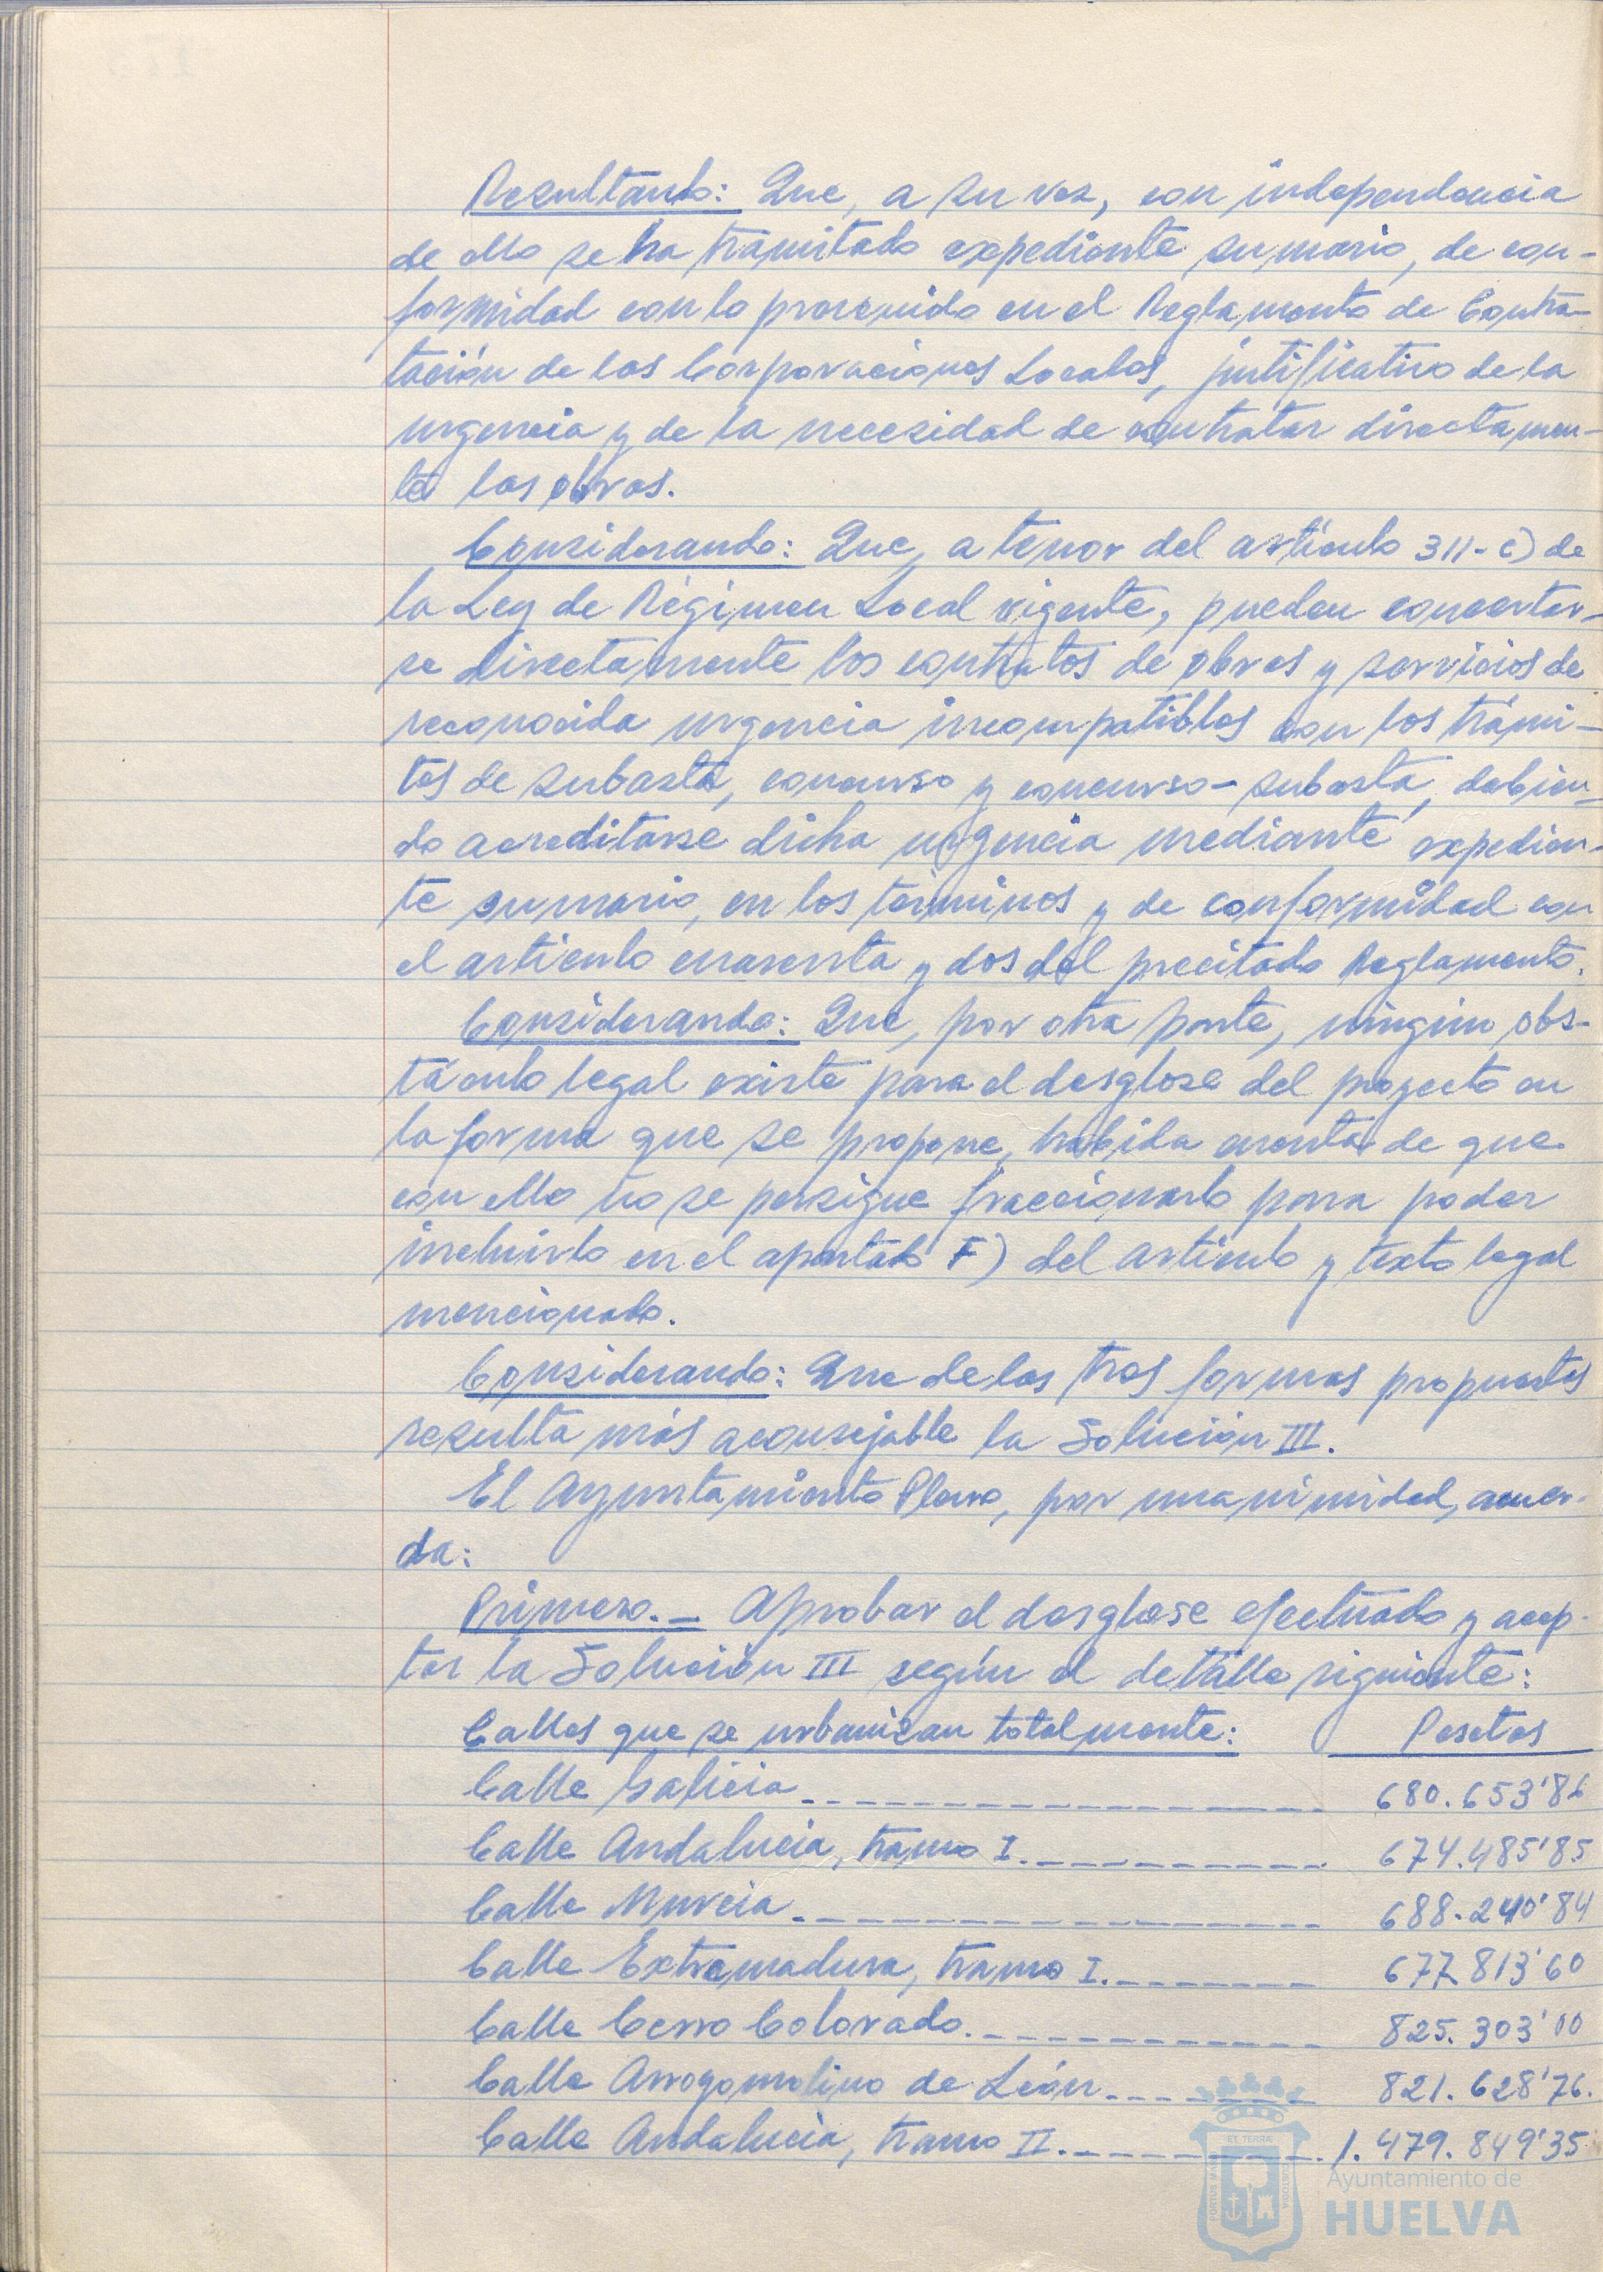 Resultando: Que, a su vez, con independencia
de ello se ha tramitado expediente sumario, de con-
formidad con lo prevenido en el Reglamento de Contra-
tación de las Corporaciones Locales, justificativo de la
urgencia y de la necesidad de contratar directamen-
te las obras.
Considerando: Que, a tenor del artículo 311-c) de
la Ley de Régimen Local vigente, pueden concertar-
se directamente los contratos de obras y servicios de
reconocida urgencia incompatibles con los trámi-
tes de subasta, concurso y concurso-subasta, debien-
do acreditarse dicha urgencia mediante expedien-
te sumario, en los términos y de conformidad con
el artículo cuarenta y dos del precitado Reglamento.
Considerando: Que, por otra parte, ningún obs-
táculo legal existe para el desglose del proyecto en
la forma que se propone, habida cuenta de que
con ello no se persigue fraccionarlo para poder
incluirlo en el apartado F) del artículo y texto legal
mencionado.
Considerando: Que de las tres formas propuestas
resulta más aconsejable la Solución III.
El Ayuntamiento Pleno, por unanimidad, acuer-
da:
Primero.- Aprobar el desglose efectuado y acep-
tar la Solución III según el detalle siguiente:
Calles que se urbanizan totalmente: Pesetas
Calle Galicia 680.653'86
Calle Andalucía, tramo I. 674.485'85
Calle Murcia 688.240'84
Calle Extremadura, tramo I. 677.813'60
Calle Cerro Colorado. 825.303'00
Calle Arroyomolino de León 821.628'76.
Calle Andalucía, tramo II. 1.479.849'35
Ayuntamiento de
HUELVA